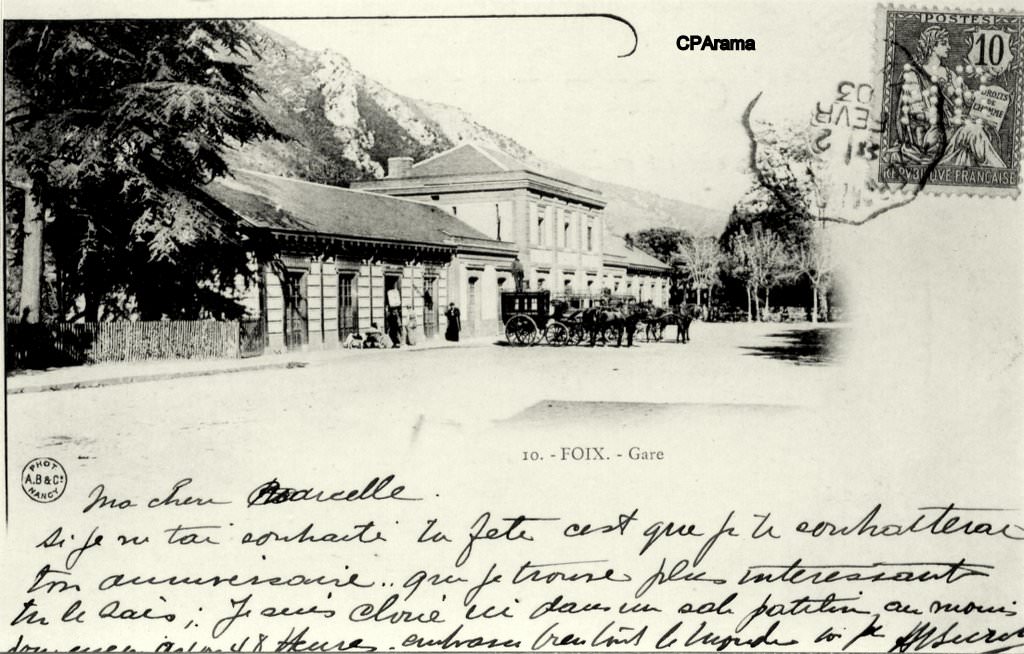 CPArama
POSTES
10
DROITS DE L'HOMME
REPUBLIQUE FRANÇAISE
2 FEVR 03
10. - FOIX. - Gare
PHOT
A.B & Cie
NANCY
Ma chere Marcelle.
Si je ne t'ai souhaité ta fete c'est que je te souhatterai
ton anniversaire.. que je trouve plus interessant
tu le sais; Je suis cloué ici dans un sale patelin, au moins
48 Heures. embrasse bien tout le monde